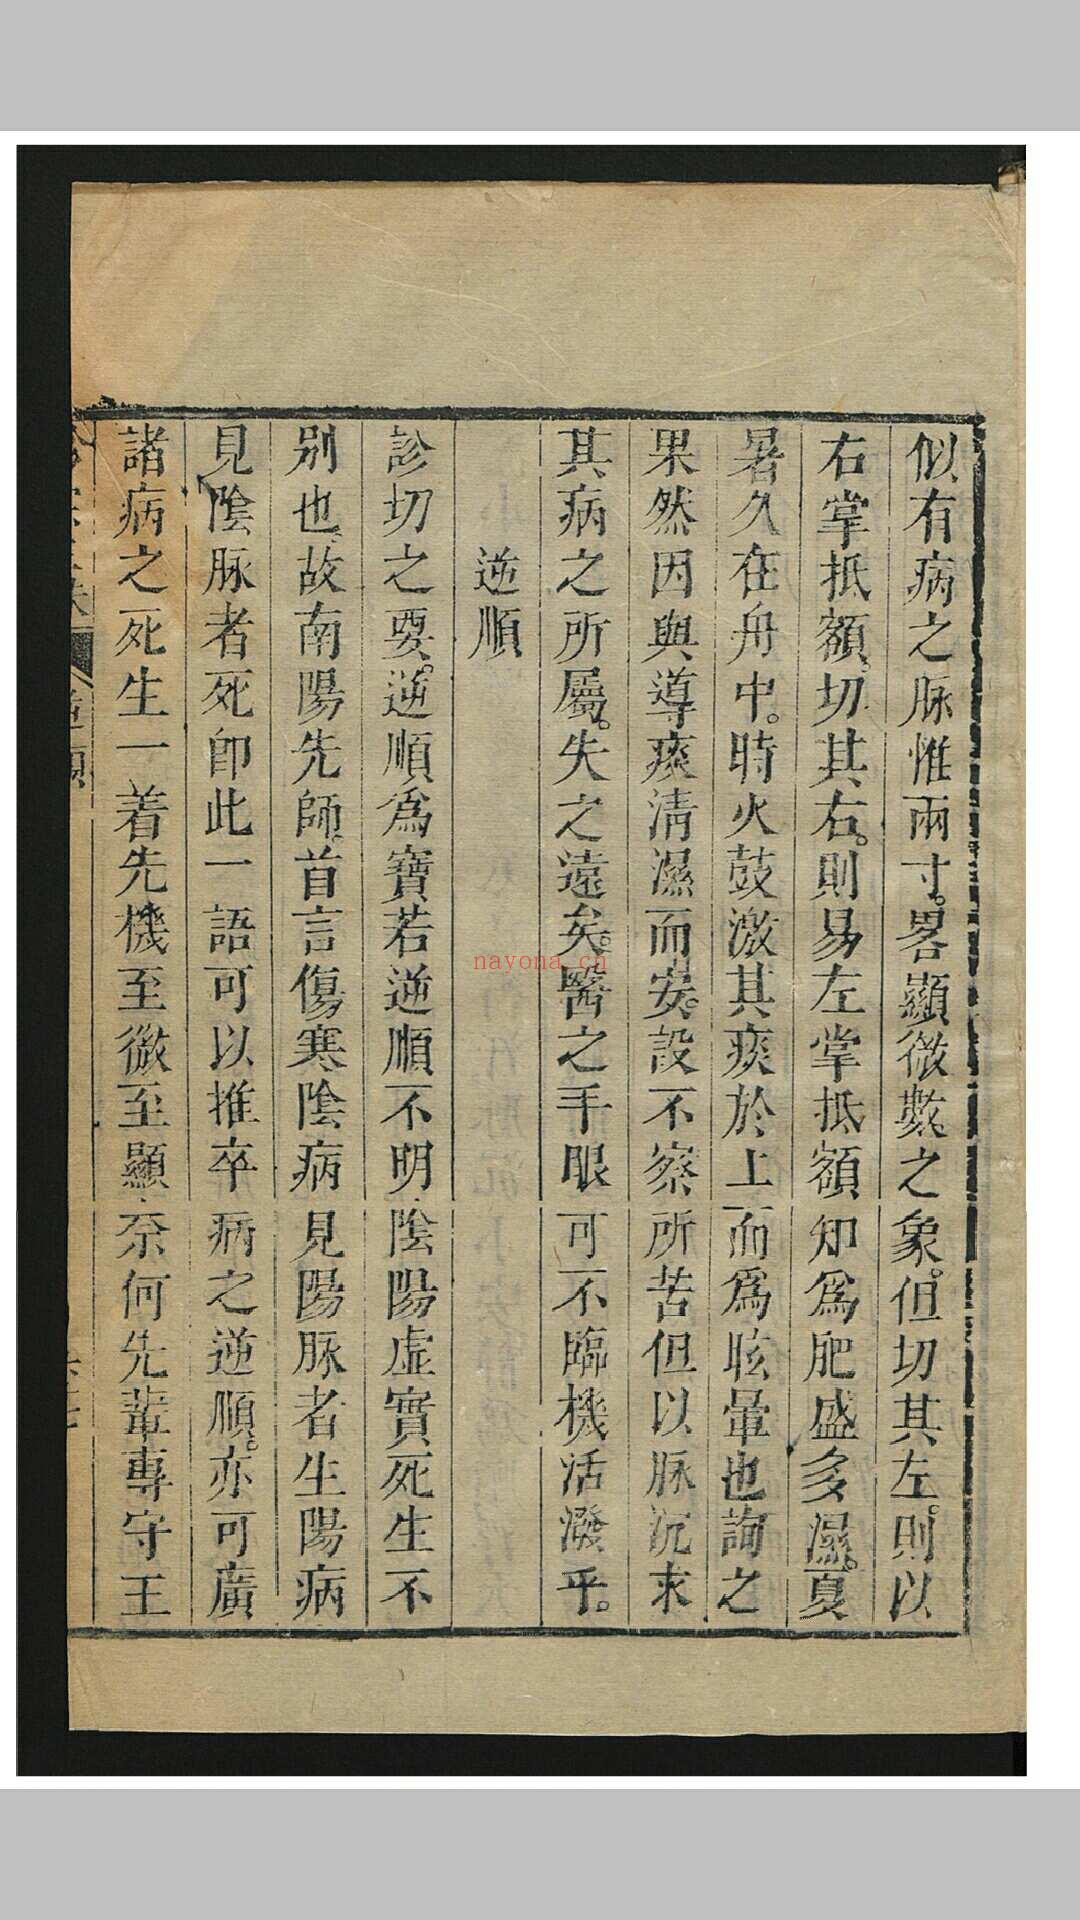 似有病之脉惟兩寸。畧顯微數之象。但切其左。則以
右掌抵額。切其右。則易左掌抵額知爲肥盛多濕。夏
暑久在舟中。時火鼓激其痰於上而爲眩暈也詢之
果然因與導痰清濕而安。設不察所苦但以脉沉求
其病之所屬。失之遠矣。醫之手眼可不臨機活潑乎。
逆順
診切之要。逆順爲寶若逆順不明陰陽虛實死生不
別也故南陽先師首言傷寒陰病見陽脉者生陽病
見陰脉者死卽此一語可以推卒病之逆順。亦可廣
諸病之死生一着先機至微至顯奈何先輩專守王
nayona.cn